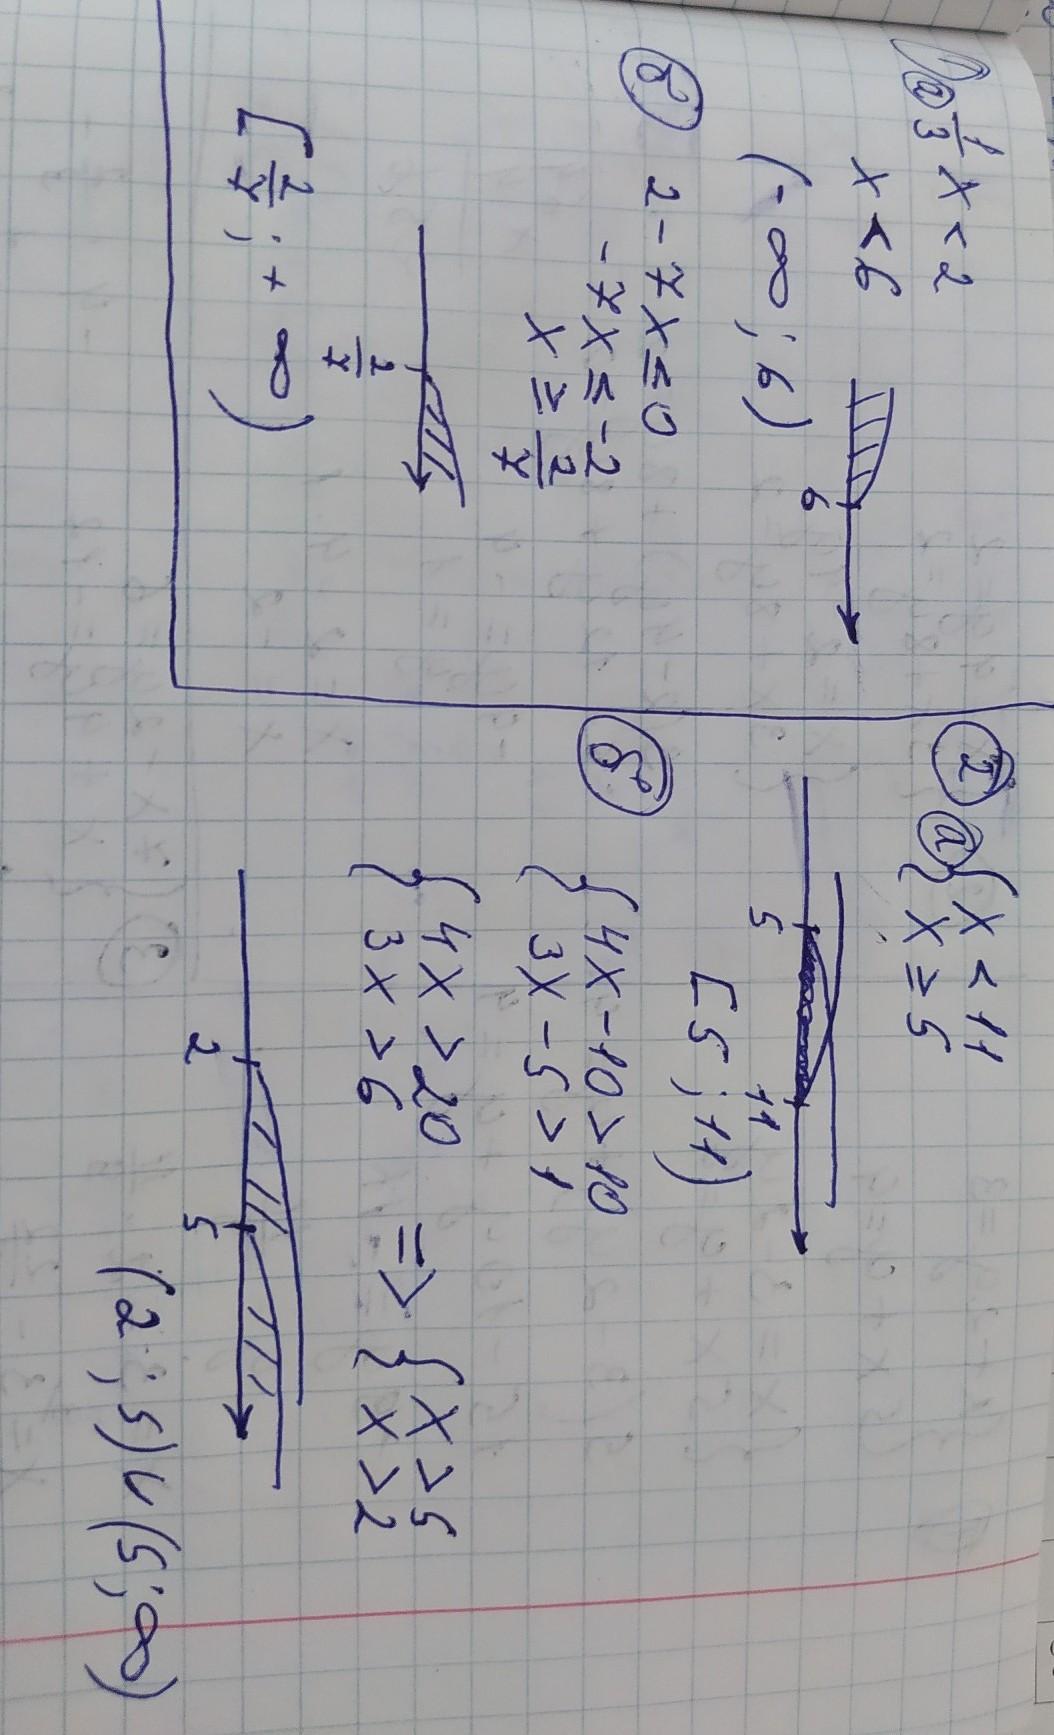 1) а) 1/3 x < 2
x < 6
6
(-∞; 6)
б) 2 - 7x ≤ 0
-7x ≤ -2
x ≥ 2/7
2/7
[2/7; +∞)
2 а) { x < 11
{ x ≥ 5
5 11
[5; 11)
б) { 4x - 10 > 10
{ 3x - 5 > 1
{ 4x > 20 => { x > 5
{ 3x > 6 { x > 2
2 5
(2; 5) ∪ (5; ∞)